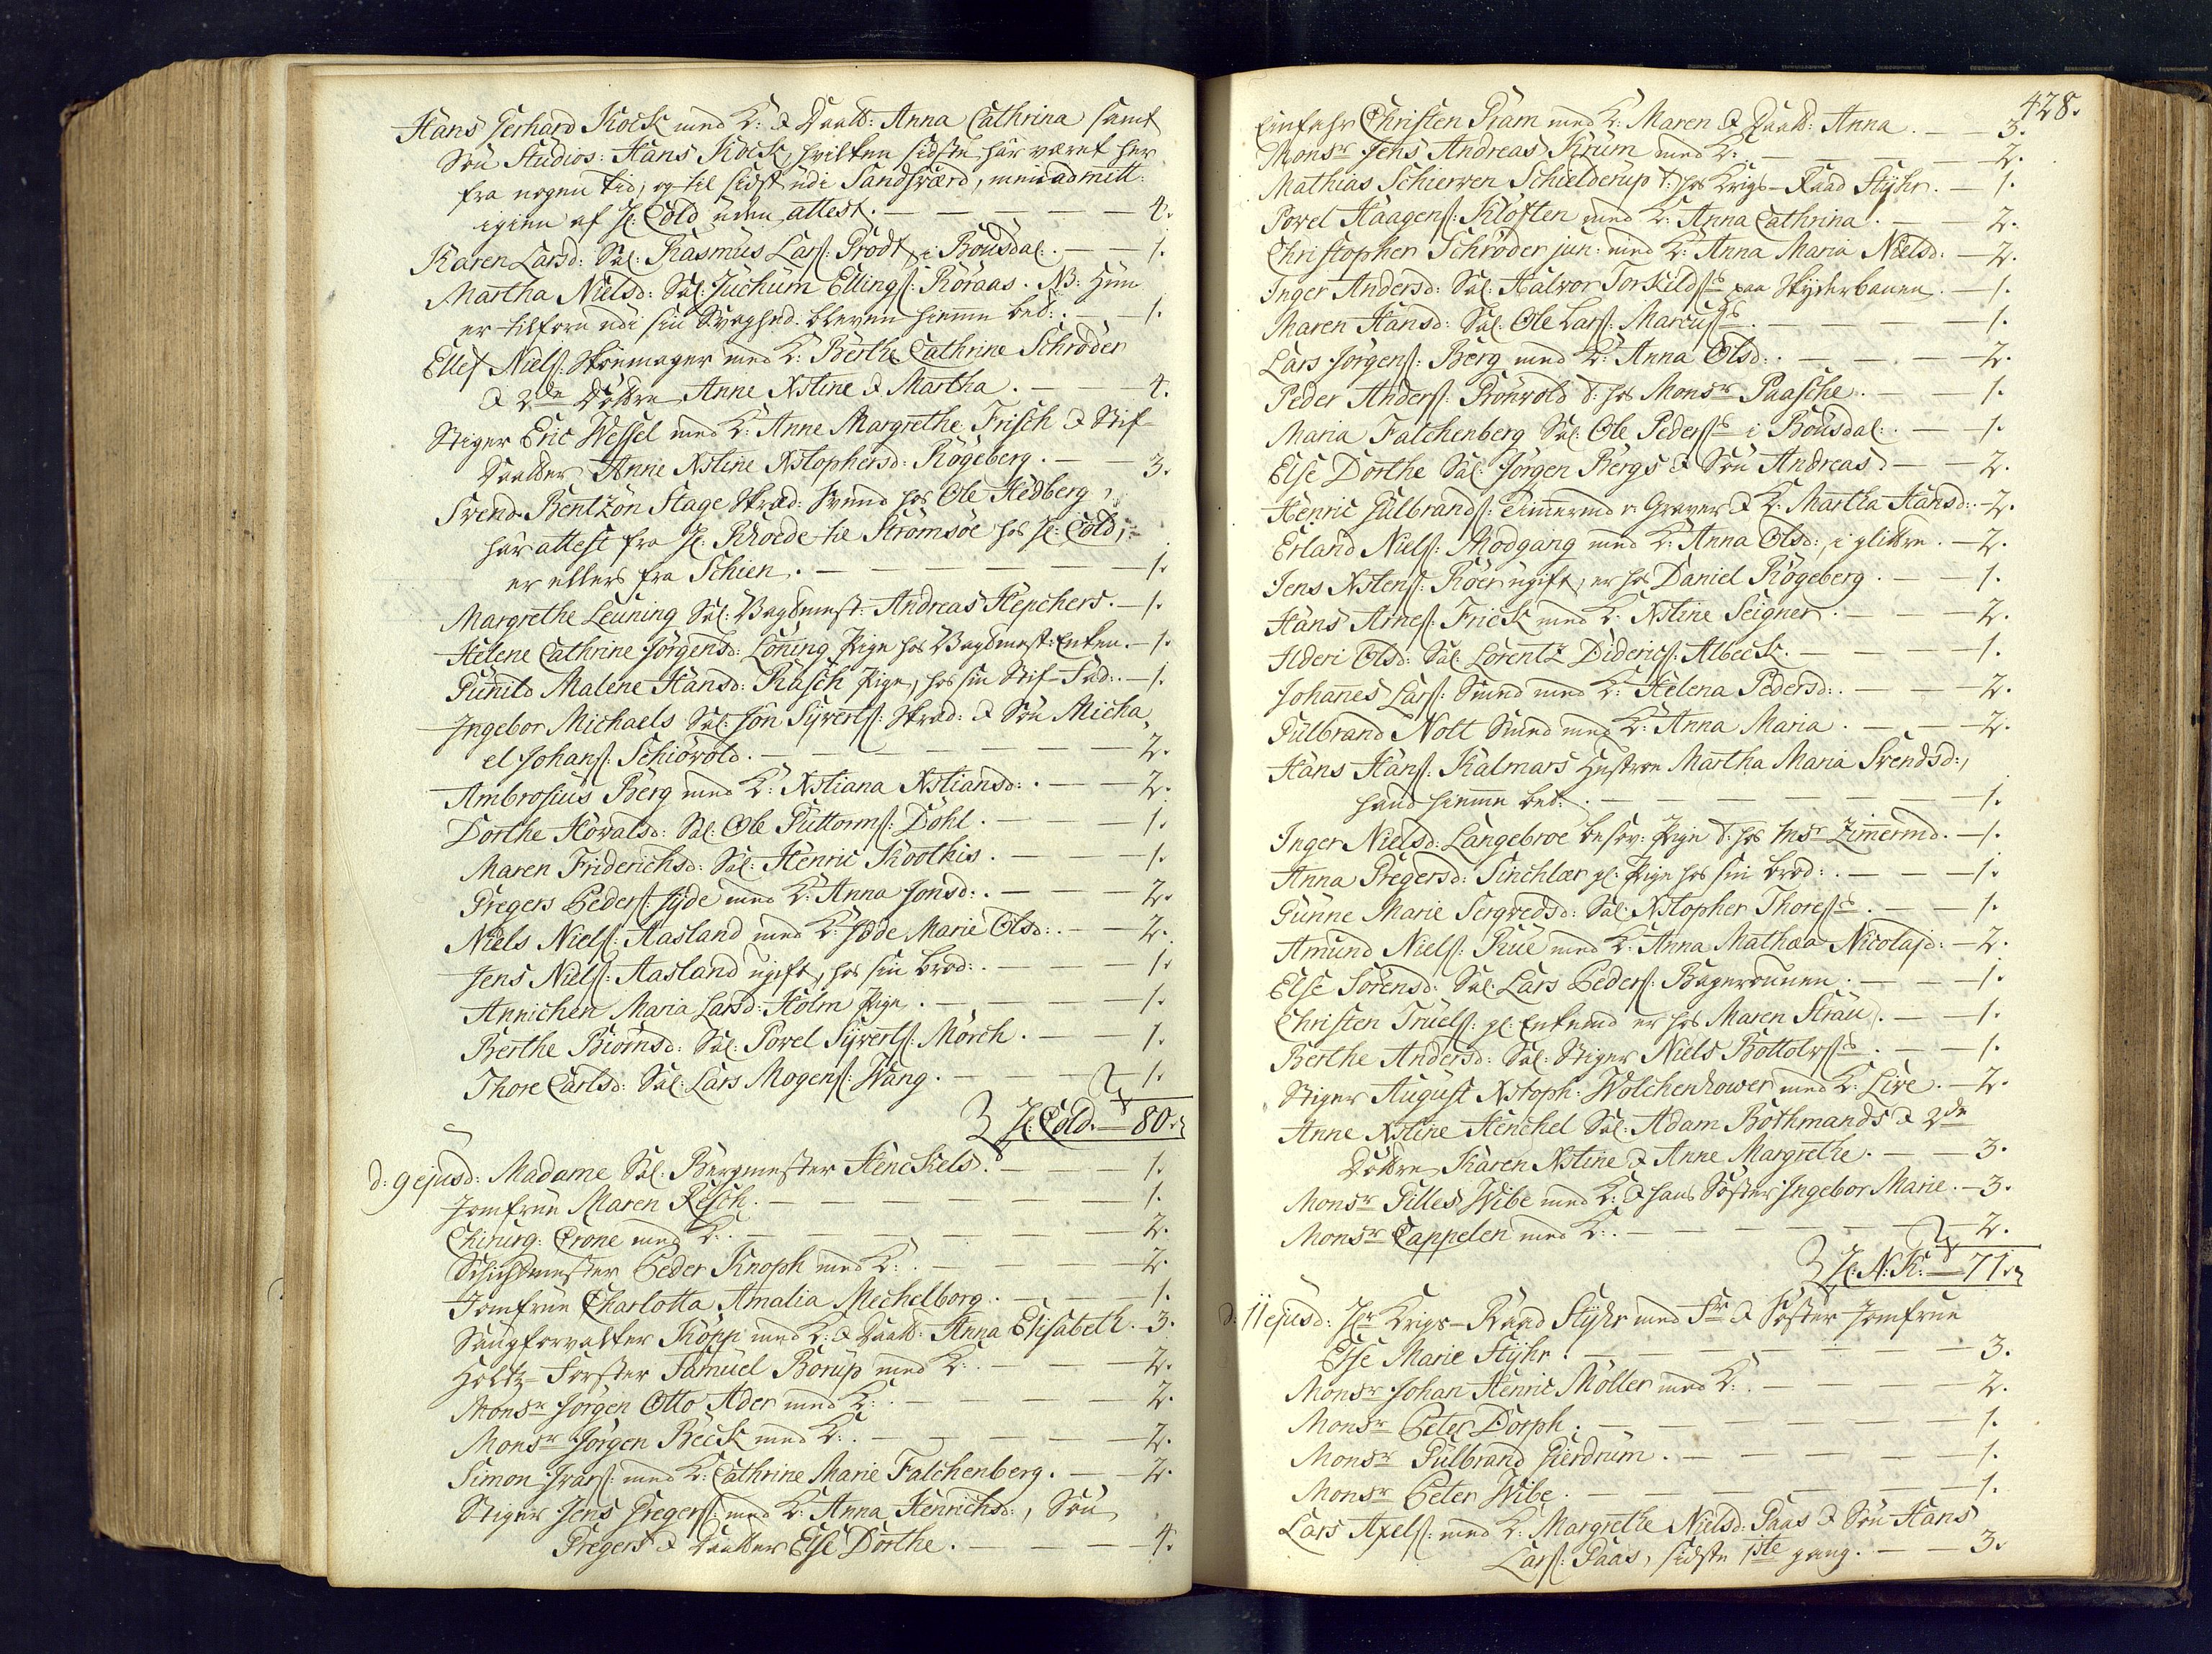 Hans Gerhard Kock med K: & Daatt: Anna Cathrina samt
Søn Studios: Hans Kock, hvilken sidste har været her
fra nogen tid, og til sidst udi Sandsværd, men admitt:
igien af H: Cold uden attest. — 4.
Karen Larsd: Sal: Rasmus Lars: Brodt, i Bousdal. — 1.
Martha Nielsd: Sal: Juchum Ellings: Röraas. NB: Hun
er tilforn udi sin Svaghed bleven hiemme bet: — 1.
Ellef Niels: Skoemager med K: Berthe Cathrine Schröder
& 2de Döttre Anne Xstine & Martha. — 4.
Stiger Eric Wessel med K: Anne Margrethe Frisch & Stif-
Daatter Anne Xstine Xstophersd: Rögeberg. — 3.
Svend Bentzon Stage Skræd: Svend hos Ole Hedberg,
har attest fra H: Rhoede til Strömsöe hos H: Cold,
er ellers fra Schien. — 1.
Margrethe Leuning Sal: Bagdmest: Andreas Hepchers. — 1.
Helene Cathrine Jörgensd: Löning Pige hos Bagdmest: Enken. — 1.
Gunild Malene Hansd: Rasch Pige, hos sin Stif-Fad: — 1.
Ingebor Michaels Sal: Jon Syverts: Skræd: & Søn Micha-
el Johans: Schiövold. — 2.
Ambrosius Berg med K: Xstiana Xstiansd: — 2.
Dorthe Hovalsd: Sal: Ole Guttorms: Döhl. — 1.
Maren Friderichsd: Sal: Henric Koothis. — 1.
Gregers Peders: Jyde med K: Anna Jonsd: — 2.
Niels Niels: Aasland med K: Jdde Marie Olsd: — 2.
Jens Niels: Aasland ugift, hos sin brod: — 1.
Annichen Maria Larsd: Holm Pige. — 1.
Berthe Biörnsd: Sal: Povel Syverts: Mörch. — 1.
Thore Carlsd: Sal: Lars Mogens: Wang. — 1.
H: Cold. — 80.
d: 9 ejusd: Madame Sal: Bergmester Henckels. — 1.
Jomfrue Maren Resch. — 1.
Chirurg: Crone med K: — 2.
Schichtmester Peder Knoph med K: — 2.
Jomfrue Charlotta Amalia Mechelborg. — 1.
Saugforvalter Köppi med K: & Daatt: Anna Elisabeth. 3.
Holtz-Forster Samuel Borup med K: — 2.
Monsr Jörgen Otto Ader med K: — 2.
Monsr Jörgen Beck med K: — 2.
Simon Ivars: med K: Cathrine Marie Falchenberg. — 2.
Stiger Jens Gregers: med K: Anna Henrichsd:, Søn
Gregers & Daatter Else Dorthe. — 4.
428.
Einfahr Christen Pram med K: Maren & Daatt: Anna. — 3.
Monsr Jens Andreas Krum med K: — 2.
Mathias Schierven Schielderup t: hos Krigs-Raad Stÿhr. — 1.
Povel Haagens: Klöften med K: Anna Cathrina. — 2.
Christopher Schröder jun: med K: Anna Maria Nielsd. — 2.
Inger Andersd: Sal: Halvor Torkilds: paa Skyderbanen. — 1.
Maren Hansd: Sal: Ole Lars: Marcus: — 1.
Lars Jörgens: Berg med K: Anna Olsd: — 2.
Peder Anders: Grönvold t: hos Monsr Paasche. — 1.
Maria Falchenberg Sal: Ole Peders: i Bousdal. — 1.
Else Dorthe Sal: Jörgen Bergs & Søn Andreas — 2.
Henric Gulbrands: Timmermd & Graver & K: Martha Hansd: — 2.
Erland Niels: Modgang med K: Anna Olsd:, i glittre. — 2.
Jens Xstens: Röer ugift, er hos Daniel Rögeberg. — 1.
Hans Arnes: Frick med K: Xstine Seigner. — 2.
Ilderi Olsd: Sal: Lorentz Dideric: Albeck. — 1.
Johannes Lars: Smed med K: Helena Pedersd: — 2.
Gulbrand Nott Smed med K: Anna Maria. — 2.
Hans Hans: Kalmars Hustroe Martha Maria Svendsd:,
hand hiemme bet: — 1.
Inger Nielsd: Langebroe besov: Pige t: hos Msr Zimermd. — 1.
Anna Gregersd: Sinchlær gl: Pige hos sin brod: — 1.
Gunne Marie Sergredsd: Sal: Xstopher Thores: — 1.
Amund Niels: Rue med K: Anna Mathæa Nicolajd: — 2.
Else Sörensd: Sal: Lars Peders: Bagerovnen. — 1.
Christen Truels: gl: Enkemd er hos Maren Strau. — 1.
Berthe Andersd: Sal: Stiger Niels Bottolvs: — 1.
Stiger August Xstoph: Wolchenhower med K: Live. — 2.
Anne Xstine Henchel Sal: Adam Bothmands & 2de
Döttre Karen Xstine & Anne Margrethe. — 3.
Monsr Gilles Wibe med K: & hans Söster Ingebor Marie. — 3.
Monsr Cappelen med K: — 2.
H: N: K: — 71.
d: 11 ejusd: Hr Krigs-Raad Stÿhr med Fr & Söster Jomfrue
Else Marie Stÿhr. — 3.
Monsr Johan Henric Möller med K: — 2.
Monsr Peter Dorph. — 1.
Monsr Gulbrand Gierdrum. — 1.
Monsr Peter Wibe. — 1.
Lars Axels: med K: Margrethe Nielsd: Paas & Søn Hans
Lars: Paas, sidste 1ste gang. — 3.